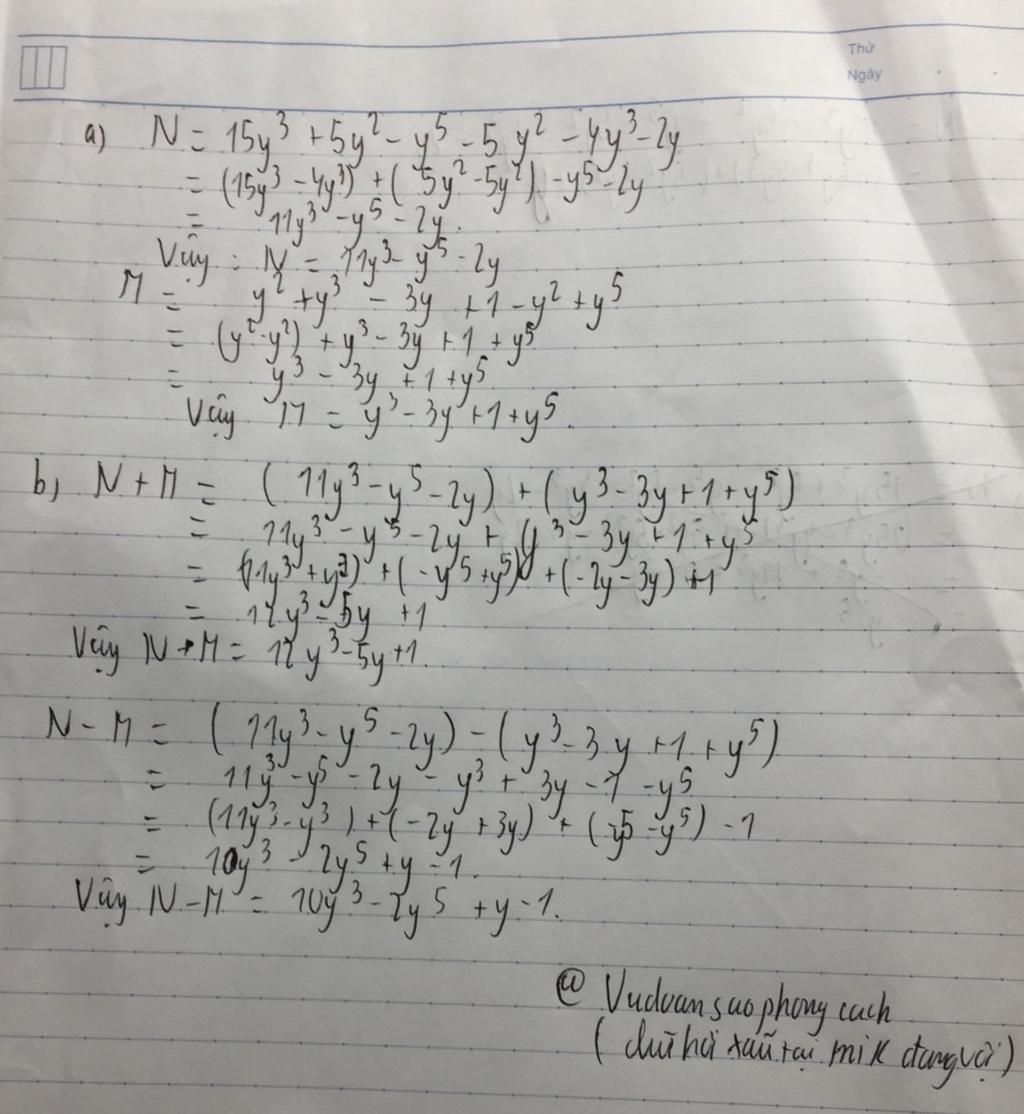 Thứ
Ngày
a) N = 15y³ + 5y² - y⁵ - 5y² - 4y³ - 2y
= (15y³ - 4y³) + (5y² - 5y²) - y⁵ - 2y
= 11y³ - y⁵ - 2y.
Vậy : N = 11y³ - y⁵ - 2y
M = y² + y³ - 3y + 1 - y² + y⁵
= (y² - y²) + y³ - 3y + 1 + y⁵
= y³ - 3y + 1 + y⁵
Vậy M = y³ - 3y + 1 + y⁵.
b) N + M = (11y³ - y⁵ - 2y) + (y³ - 3y + 1 + y⁵)
= 11y³ - y⁵ - 2y + y³ - 3y + 1 + y⁵
= (11y³ + y³) + (-y⁵ + y⁵) + (-2y - 3y) + 1
= 12y³ - 5y + 1
Vậy N + M = 12y³ - 5y + 1.
N - M = (11y³ - y⁵ - 2y) - (y³ - 3y + 1 + y⁵)
= 11y³ - y⁵ - 2y - y³ + 3y - 1 - y⁵
= (11y³ - y³) + (-2y + 3y) + (-y⁵ - y⁵) - 1
= 10y³ - 2y⁵ + y - 1.
Vậy N - M = 10y³ - 2y⁵ + y - 1.
@ Vudoansaophongcach
(chữ hơi xấu tại mik đang vội)